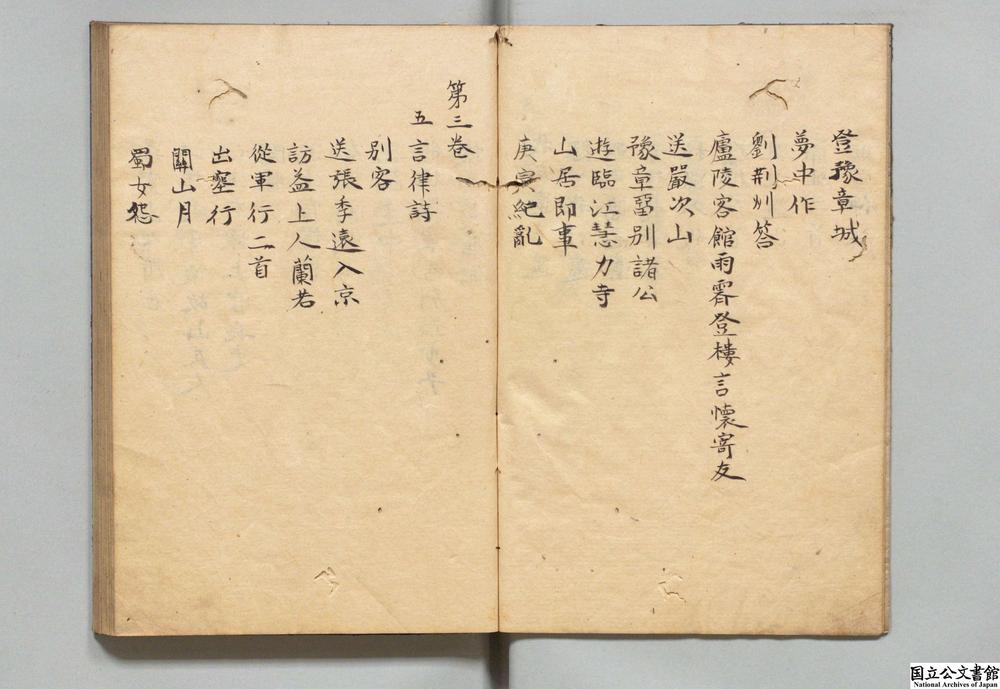 登豫章城
夢中作
劉荆州答
廬陵客館雨霽登樓言懷寄友
送嚴次山
豫章畱別諸公
遊臨江慧力寺
山居即事
庚寅紀亂
第三卷
五言律詩
別客
送張季遠入京
訪益上人蘭若
從軍行二首
出塞行
關山月
蜀女怨
国立公文書館
National Archives of Japan